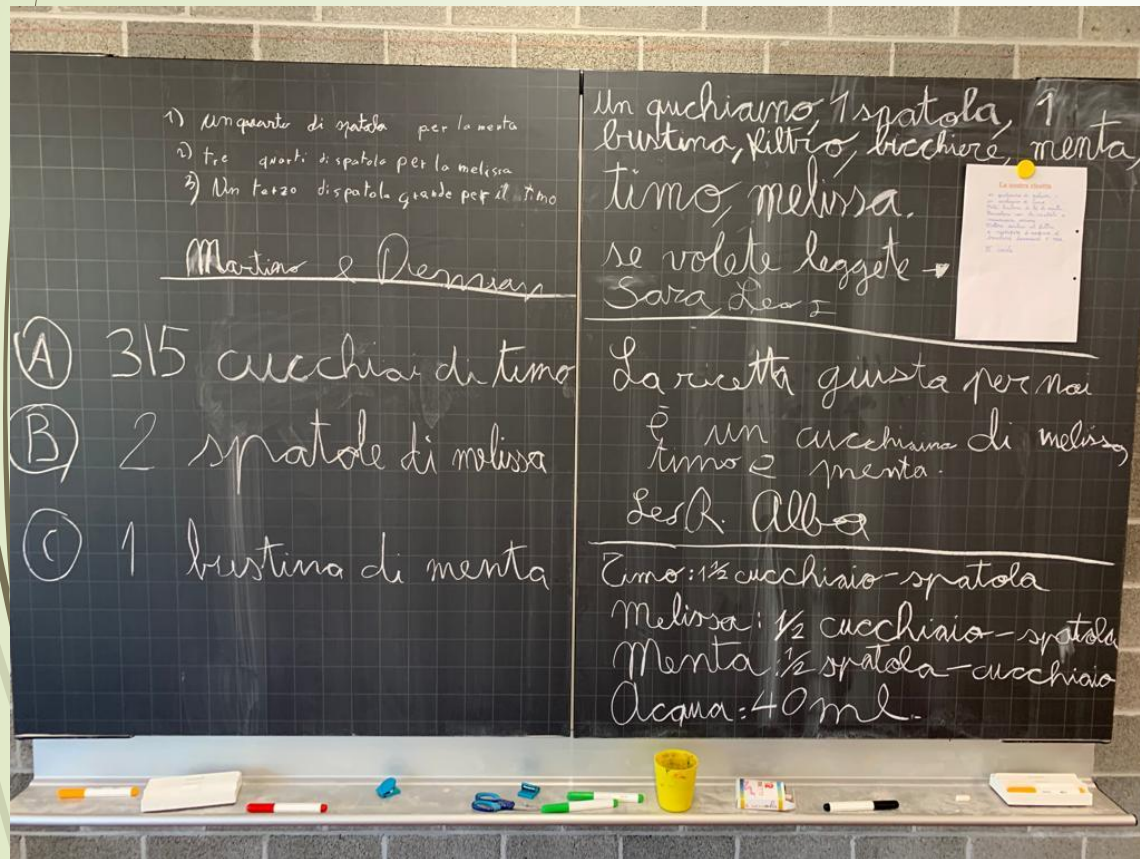 1) un quarto di spatola per la menta
2) tre quarti di spatola per la melissa
3) Un terzo di spatola grande per il timo
Martino & Demian
A 3\5 cucchiai di timo
B 2 spatole di melissa
C 1 bustina di menta
un quchiaino, 1 spatola, 1
bustina, filtro, bicchiere, menta,
timo, melissa.
se volete leggete →
Sara, Leo I
La nostra ricetta
La ricetta giusta per noi
è un cucchiaino di melissa,
timo e menta.
Leo R. Alba
Timo: 1½ cucchiaio-spatola
Melissa: ½ cucchiaio-spatola
Menta: ½ spatola-cucchiaio
Acqua: 40 ml.